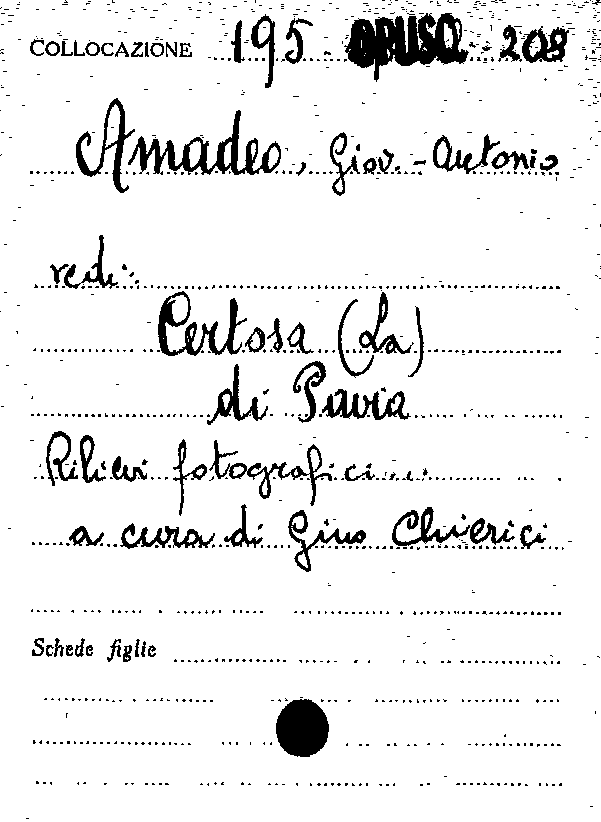 COLLOCAZIONE 195. OPUSC. 208
Amadeo, Giov.-Antonio
vedi:
Certosa (La)
di Pavia
Rilievi fotografici...
a cura di Gius Chierici
Schede figlie